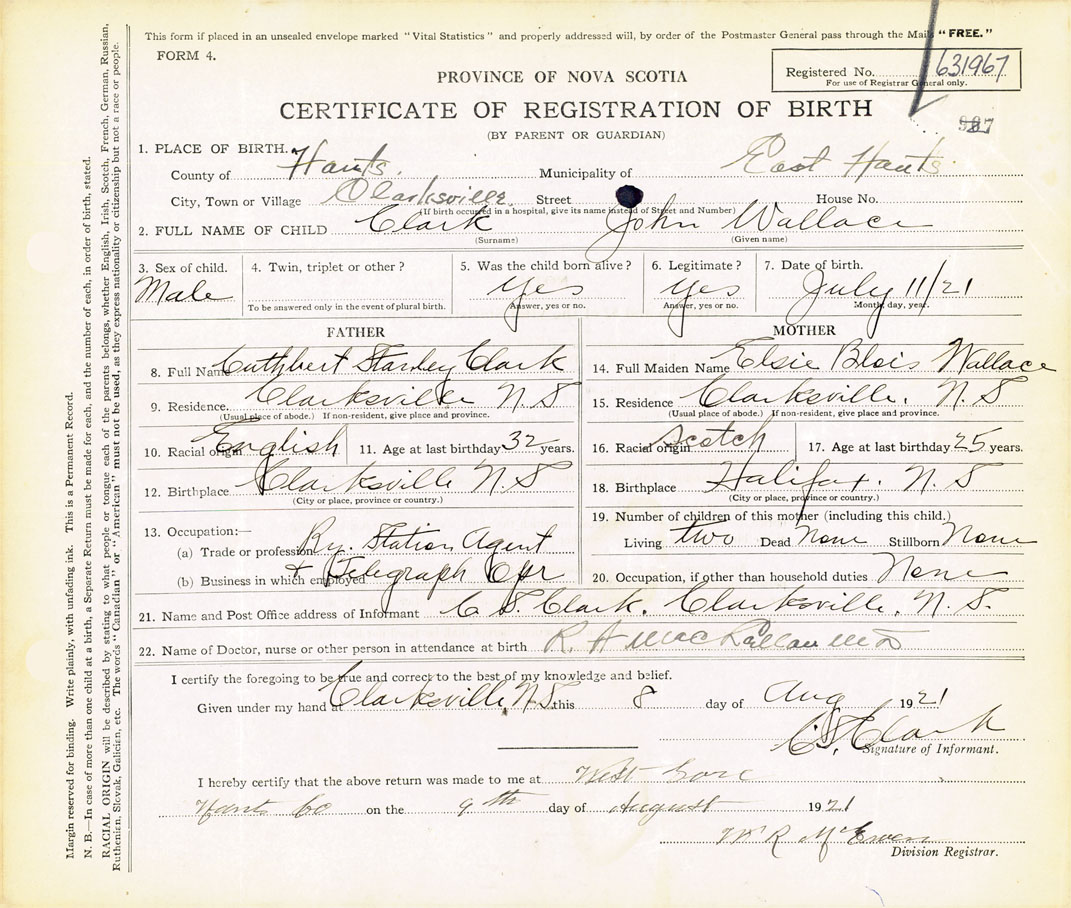 This form if placed in an unsealed envelope marked "Vital Statistics" and properly addressed will, by order of the Postmaster General pass through the Mails "FREE."
FORM 4.
Registered No. 631967
For use of Registrar General only.
PROVINCE OF NOVA SCOTIA
CERTIFICATE OF REGISTRATION OF BIRTH
(BY PARENT OR GUARDIAN)
1. PLACE OF BIRTH.
County of Hants. Municipality of East Hants
City, Town or Village Clarksville. Street House No.
(If birth occurred in a hospital, give its name instead of Street and Number)
2. FULL NAME OF CHILD Clark John Wallace
(Surname) (Given name)
3. Sex of child. 4. Twin, triplet or other? 5. Was the child born alive? 6. Legitimate? 7. Date of birth.
Male Yes Yes July 11/21
To be answered only in the event of plural birth. Answer, yes or no. Answer, yes or no. Month, day, year.
FATHER
8. Full Name Cuthbert Stanley Clark
9. Residence. Clarksville N.S
(Usual place of abode.) If non-resident, give place and province.
10. Racial origin English 11. Age at last birthday 32 years.
12. Birthplace Clarksville N S
(City or place, province or country.)
13. Occupation:—
(a) Trade or profession Ry. Station Agent
(b) Business in which employed + Telegraph Opr
MOTHER
14. Full Maiden Name Elsie Blois Wallace
15. Residence Clarksville. N.S
(Usual place of abode.) If non-resident, give place and province.
16. Racial origin Scotch 17. Age at last birthday 25 years.
18. Birthplace Halifax. N.S
(City or place, province or country.)
19. Number of children of this mother (including this child.)
Living two Dead None Stillborn None
20. Occupation, if other than household duties None
21. Name and Post Office address of Informant C S. Clark. Clarksville. N.S.
22. Name of Doctor, nurse or other person in attendance at birth R. A MacLellan MD
I certify the foregoing to be true and correct to the best of my knowledge and belief.
Given under my hand at Clarksville N.S. this 8 day of Aug 1921
C.S. Clark
Signature of Informant.
I hereby certify that the above return was made to me at West Gore
Hants Co on the 9th day of August 1921
W R McEwen
Division Registrar.
Margin reserved for binding. Write plainly, with unfading ink. This is a Permanent Record.
N. B.—In case of more than one child at a birth, a Separate Return must be made for each, and the number of each, in order of birth, stated.
RACIAL ORIGIN will be described by stating to what people or tongue each of the parents belongs, whether English, Irish, Scotch, French, German, Russian,
Ruthenian, Slovak, Galician, etc. The words "Canadian" or "American" must not be used, as they express nationality or citizenship but not a race or people.